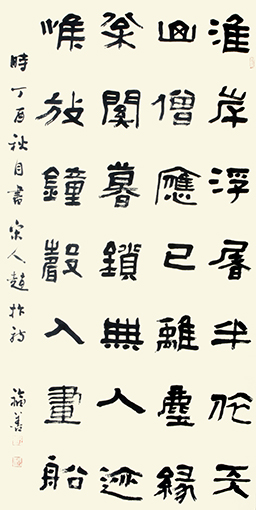 淮岸浮屠半倚天
山僧應已離塵緣
枀關暮鎖無人迹
惟放鐘聲入畫船
時丁酉秋月書宋人趙抃詩 福善